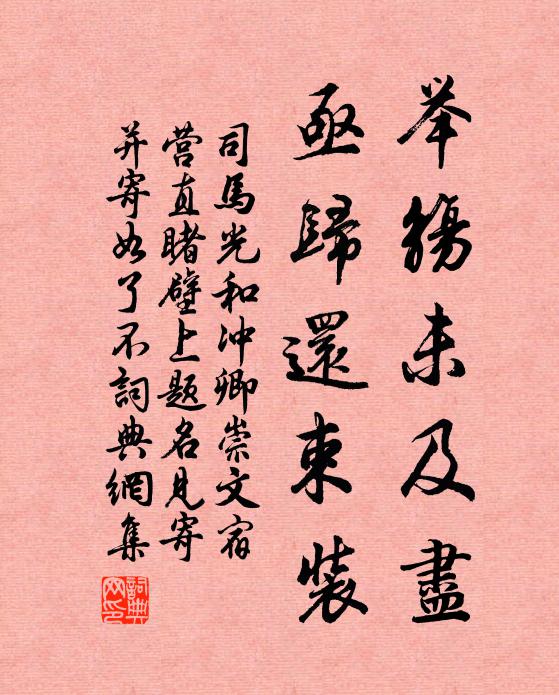 举觞未及盡
亟歸還束裝
司馬光和冲卿崇文宿
营直睹壁上题名見寄
并寄如了不詞典網集
詞典网印